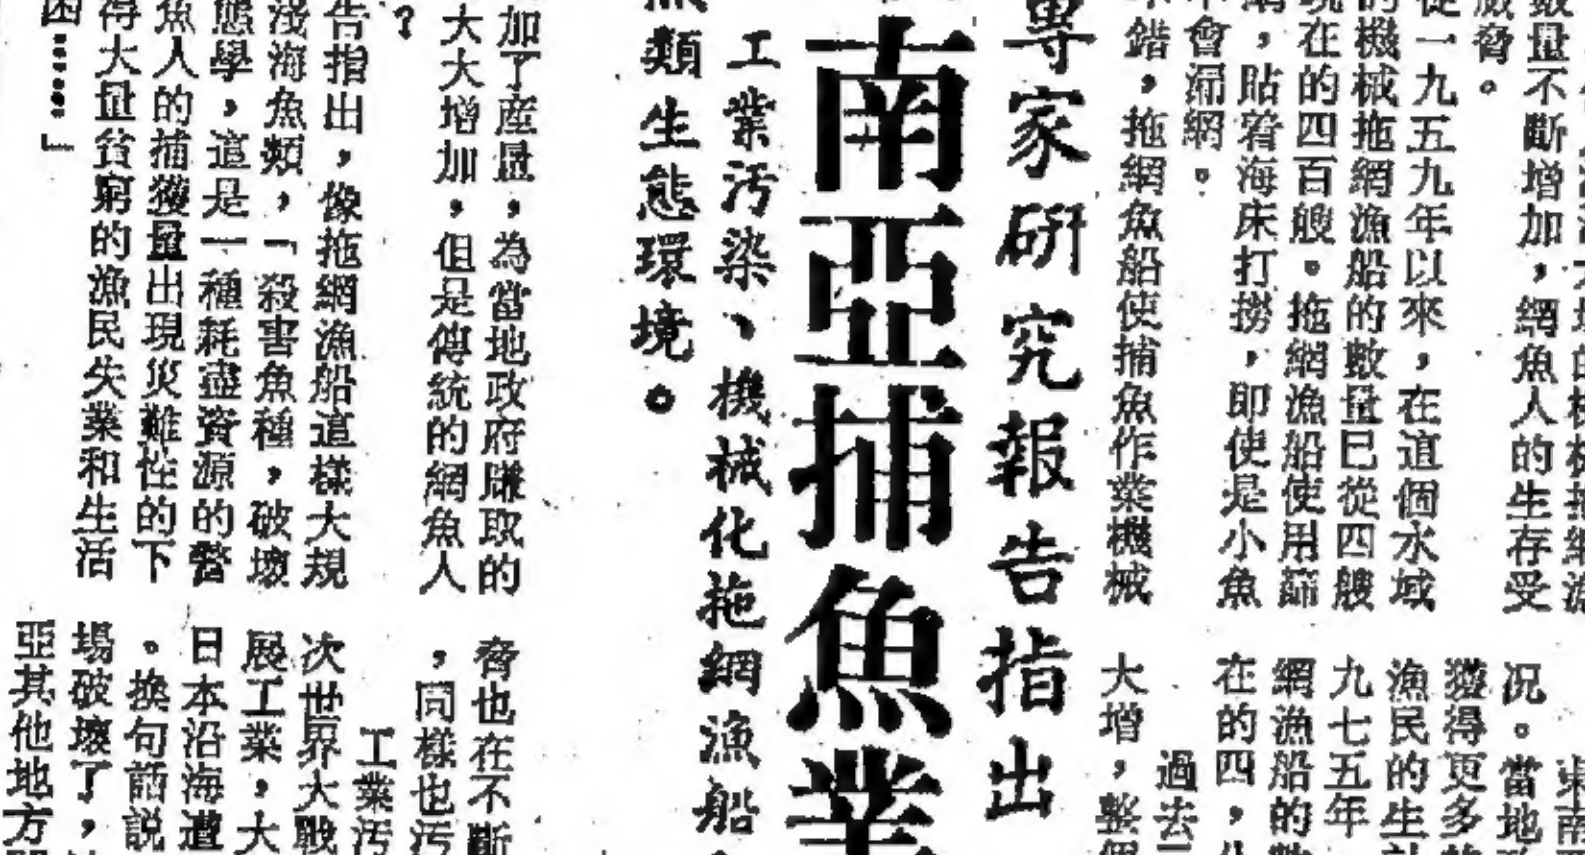 數量不斷增加，網魚人的生存受
威脅。
從一九五九年以來，在這個水域
的機械拖網漁船的數量已從四艘
現在的四百艘。拖網漁船使用篩
網，貼着海床打撈，即使是小魚
會漏網。
不錯，拖網魚船使捕魚作業機械
東南
況。當地
獲得更多
漁民的生計
九七五年
網漁船的數
在的四，
過去
大增，整個
專家研究報告指出
南亞捕魚業
工業污染、機械化拖網漁船
魚類生態環境。
加了産量，為當地政府賺取的
大大增加，但是傳統的網魚人
？
告指出，像拖網漁船這樣大規
淺海魚類，「殺害魚種，破壞
態學，這是一種耗盡資源的警
魚人的捕獲量出現災難性的下
得大量貧窮的漁民失業和生活
困……」
脅也在不斷
，同樣也污
工業污
次世界大戰
展工業，大
日本沿海遭
。換句話説
場破壞了，
亞其他地方